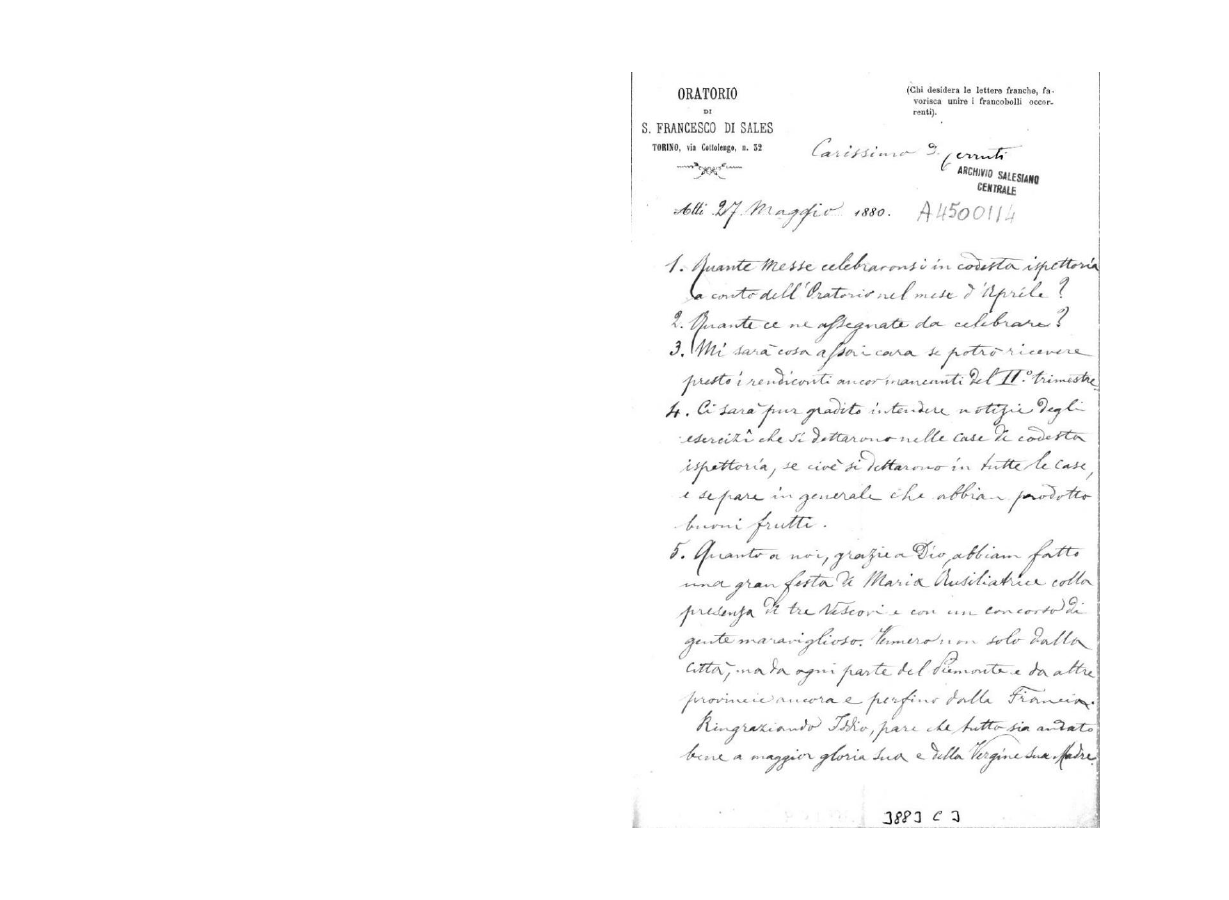 ORATORIO
DI
S. FRANCESCO DI SALES
TORINO, via Cottolengo, n. 32
(Chi desidera le lettere franche, fa-
vorisca unire i francobolli occor-
renti).
Carissimo D. Cerruti
ARCHIVIO SALESIANO
CENTRALE
Atti 27 Maggio 1880.
A4500114
1. Quante Messe celebraronsi in codesta ispettoria
a conto dell'Oratorio nel mese d'Aprile?
2. Quante ce ne assegnate da celebrare?
3. Mi sarà cosa assai cara se potrò ricevere
presto i rendiconti ancor mancanti del II.° trimestre.
4. Ci sarà pur gradito intendere notizie degli
esercizî che si dettarono nelle case di codesta
ispettoria, se cioè si dettarono in tutte le case,
e se pare in generale che abbian prodotto
buoni frutti.
5. Quanto a noi, grazie a Dio, abbiam fatto
una gran festa di Maria Ausiliatrice colla
presenza di tre Vescovi e con un concorso di
gente maraviglioso. Vennero non solo dalla
città, ma da ogni parte del Piemonte e da altre
provincie ancora e perfino dalla Francia.
Ringraziando Iddio, pare che tutto sia andato
bene a maggior gloria sua e della Vergine sua Madre.
3883 C 3